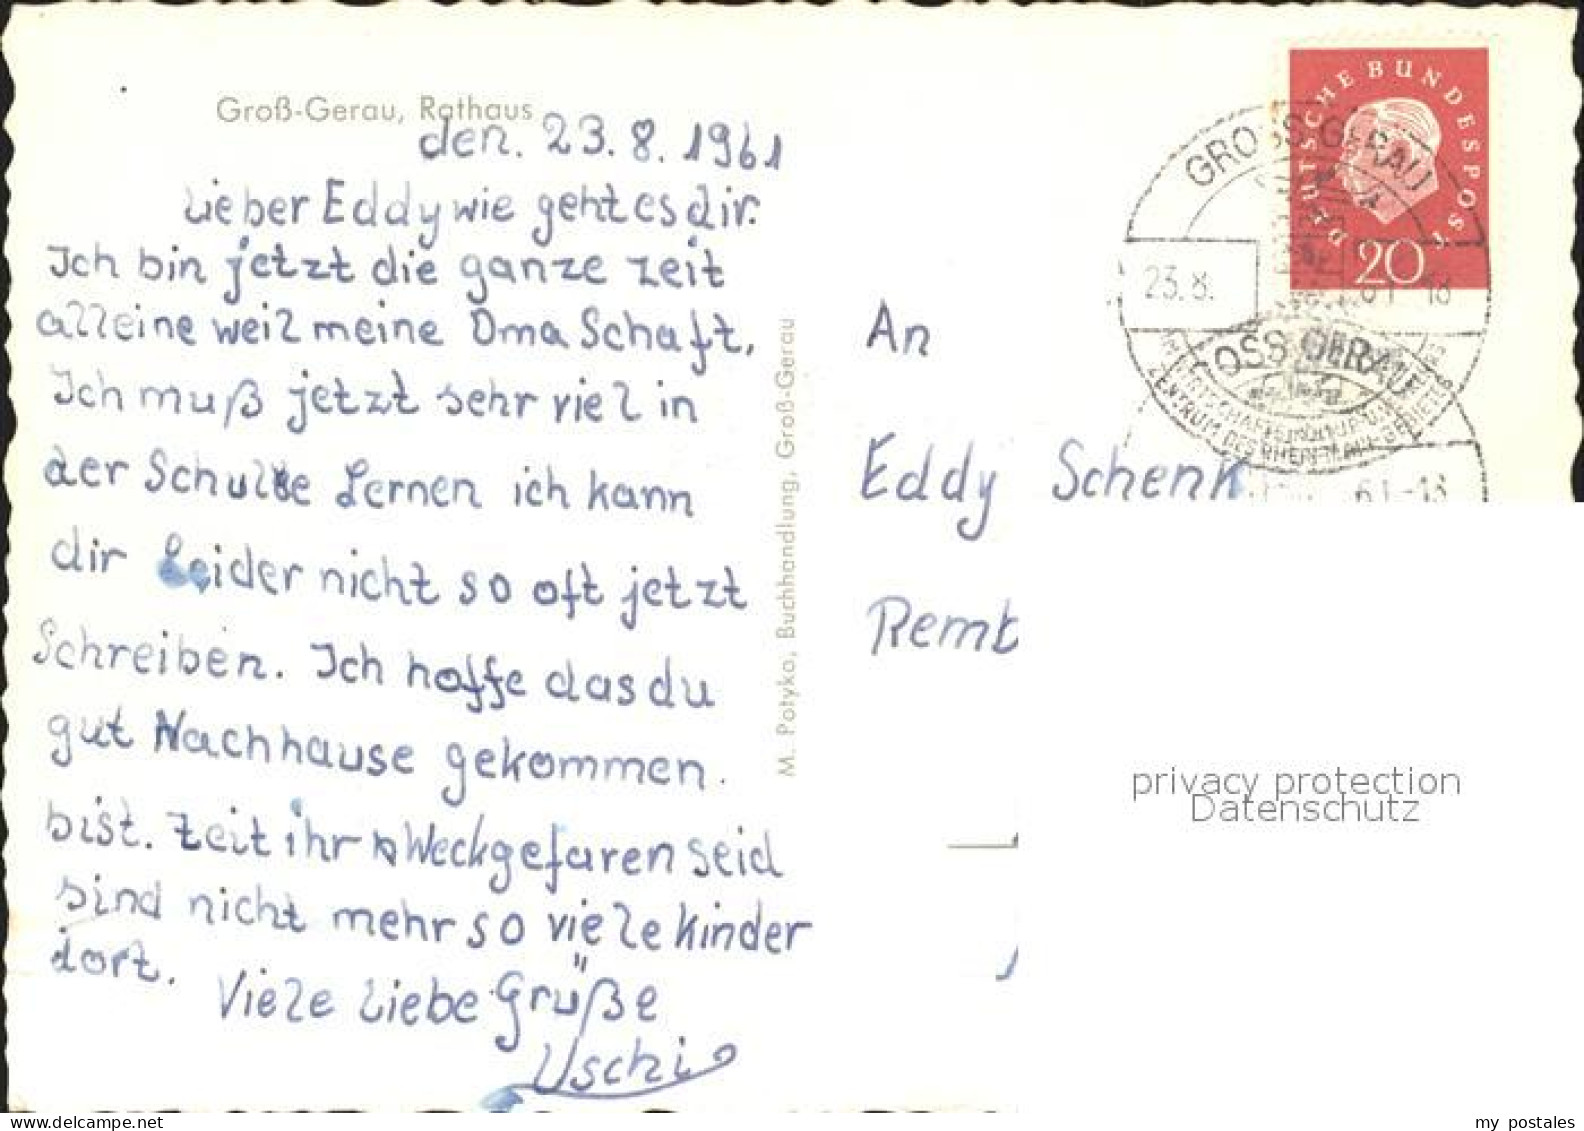 Groß-Gerau, Rathaus
den. 23.8. 1961
Lieber Eddy wie geht es dir.
Ich bin jetzt die ganze Zeit
alleine weil meine Oma Schaft,
Ich muß jetzt sehr viel in
der Schule Lernen ich kann
dir Leider nicht so oft jetzt
Schreiben. Ich hoffe das du
gut Nachhause gekommen.
bist. Zeit ihr Weckgefaren seid
sind nicht mehr so viele Kinder
dort.
Viele Liebe Grüße
Uschi
M. Potyko, Buchhandlung, Groß-Gerau
DEUTSCHE BUNDESPOST
20
GROSS-GERAU
23.8.61-18
OSS GERAU
IM WIRTSCHAFTS
ZENTRUM DES RHEIN-MAIN-GEBIETES
61-18
An
Eddy Schenk
Remb
privacy protection
Datenschutz
www.delcampe.net
my postales